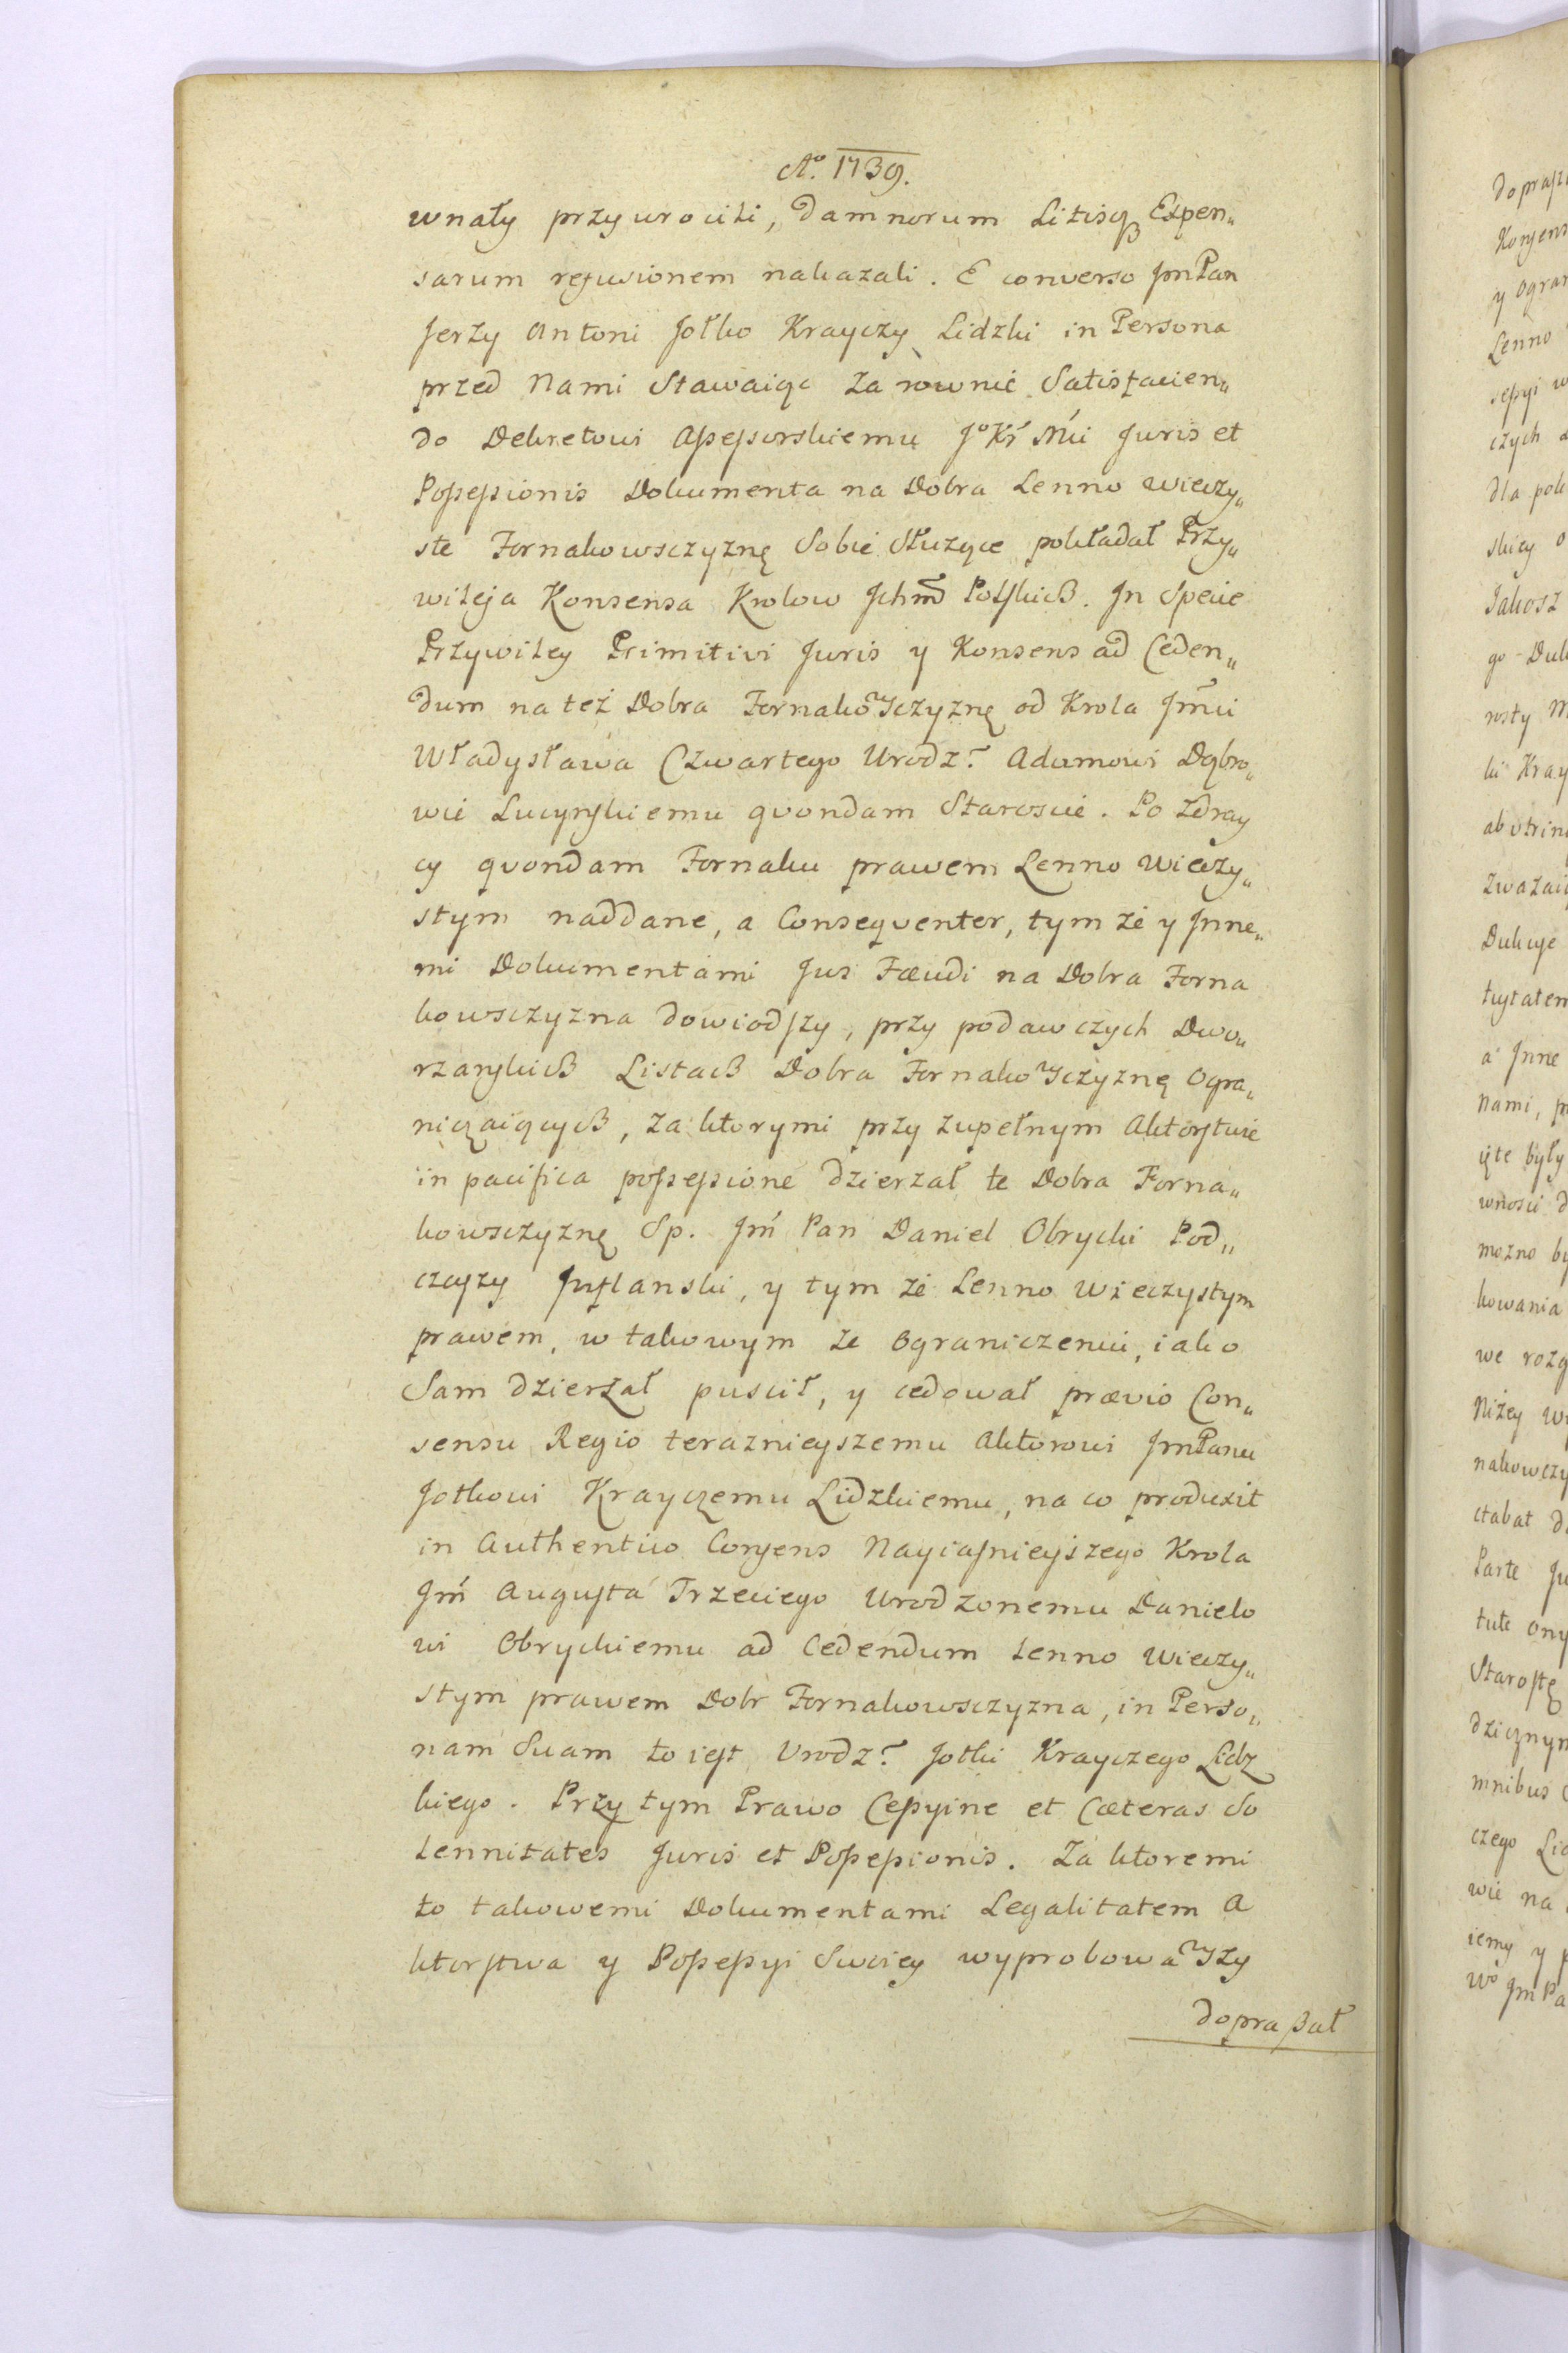 Aº. 1739.
wnały przywrocili, damnorum Litisqꝫ Expen„
sarum refusionem nakazali. E converso JmPan
Jerzy Antoni Jołko Krayczy Lidzki in Persona
przed Nami Stawaiąc za rownie Satisfacien„
do Dekretowi Assessorskiemu Jº Kr Mći Juris et
Possessionis Dokumenta na Dobra Lenno wieczy„
ste Fornakowsczyznę Sobie Służące pokładał Przy„
wileja Konsensa Krolow Ichm Polskich. In Specie
Przywiley Primitivi Juris y Konsens ad Ceden„
dum na też Dobra Fornakowsczyznę od Krola Jmći
Władysława Czwartego Urodz? Adamowi Dąbro„
wie Lucynskiemu qvondam Staroscie. Po Zdray
cy qvondam Fornaku prawem Lenno Wieczy„
stym naddane, a Conseqventer, tym że y Inne„
mi Dokumentami Jus Fæudi na Dobra Forna
kowsczyzna dowiodszy, przy podawczych Dwo„
rzanskich Listach Dobra Fornakowsczyznę Ogra„
niczaiących, za ktorymi przy zupełnym Aktorstwie
in pacifica possessione dzierzał te Dobra Forna„
kowsczyznę Sp. Jm Pan Daniel Obrycki Pod„
czaszy Inflanski, y tym że Lenno Wieczystym
prawem, w takowym ze Ograniczeniu, iako
Sam dzierzał puscił, y cedował prævio Con„
sensu Regio teraznieyszemu Aktorowi JmPanu
Jotkowi Krayczemu Lidzkiemu, na co produxit
in Authentico Consens Nayiasnieyszego Krola
Jm Augusta Trzeciego Urodzonemu Danielo
wi Obryckiemu ad Cedendum Lenno Wieczy„
stym prawem Dobr Fornakowsczyzna, in Perso„
nam Suam to iest Urodz? Jotki Krayczego Lidz
kiego. Przy tym Prawo Cessyine et Cæteras So
lennitates Juris et Possessionis. Za ktoremi
to takowemi Dokumentami Legalitatem A
ktorstwa y Possessyi Swoiey wyprobowawszy
dopraßał